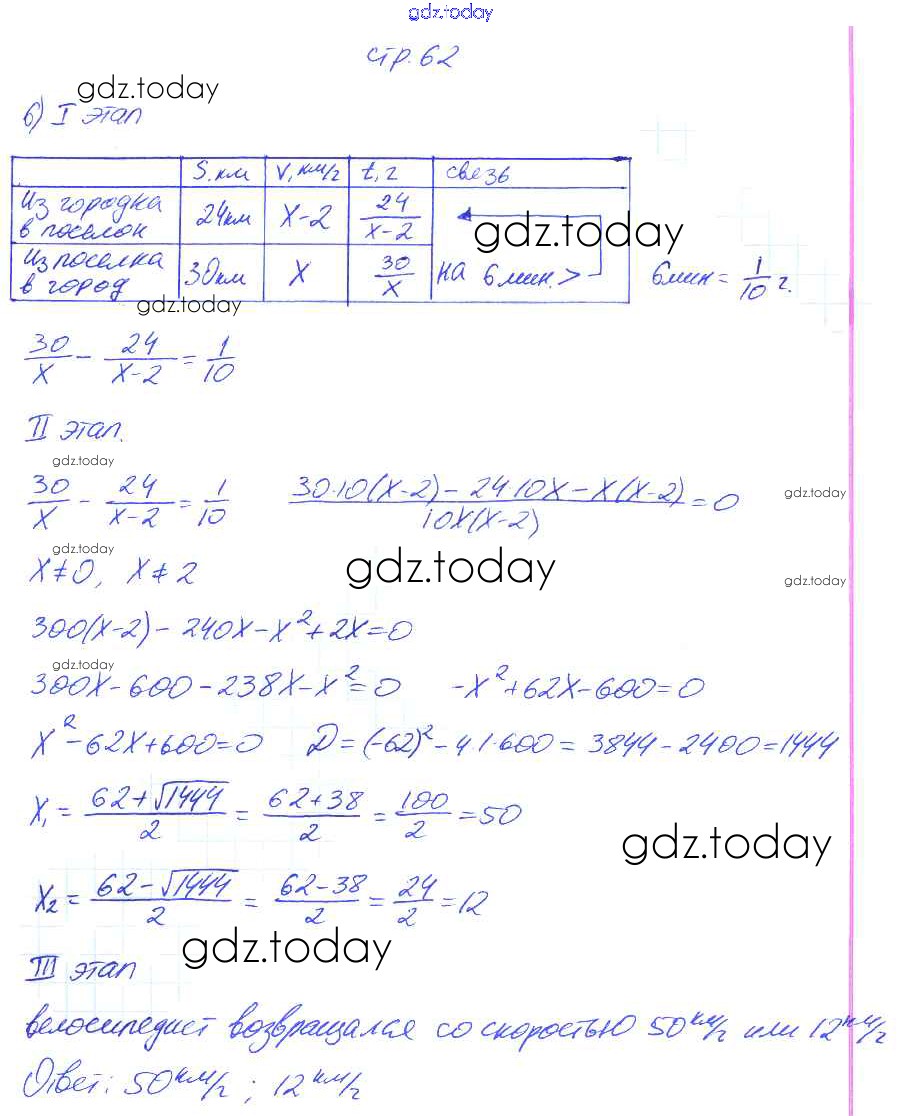 gdz.today
стр. 62
gdz.today
б) I этап
S, км V, км/ч t, ч связь
Из городка в поселок 24км x-2 24/(x-2) gdz.today
Из поселка в город 30км x 30/x на 6 мин. > 6мин = 1/10 ч.
gdz.today
30/x - 24/(x-2) = 1/10
gdz.today
II этап.
gdz.today
30/x - 24/(x-2) = 1/10 (30·10(x-2) - 24·10x - x(x-2))/(10x(x-2)) = 0 gdz.today
gdz.today
x≠0, x≠2 gdz.today gdz.today
300(x-2) - 240x - x² + 2x = 0
gdz.today
300x - 600 - 238x - x² = 0 -x² + 62x - 600 = 0
x² - 62x + 600 = 0 D = (-62)² - 4·1·600 = 3844 - 2400 = 1444
x₁ = (62+√1444)/2 = (62+38)/2 = 100/2 = 50
gdz.today
x₂ = (62-√1444)/2 = (62-38)/2 = 24/2 = 12
gdz.today
III этап
велосипедист возвращался со скоростью 50 км/ч или 12 км/ч
Ответ: 50 км/ч ; 12 км/ч